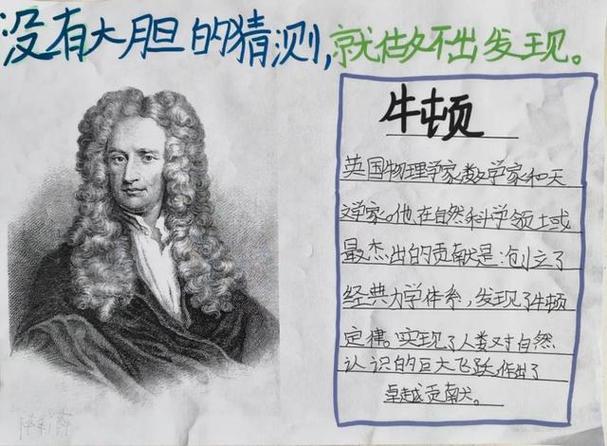 没有大胆的猜测,就做不出发现。
牛顿
英国物理学家,数学家和天
文学家。他在自然科学领土或
最杰出的贡献是:创立了
经典力学体系,发现了牛顿
定律。实现了人类对自然
认识的巨大飞跃,作出了
卓越贡献。